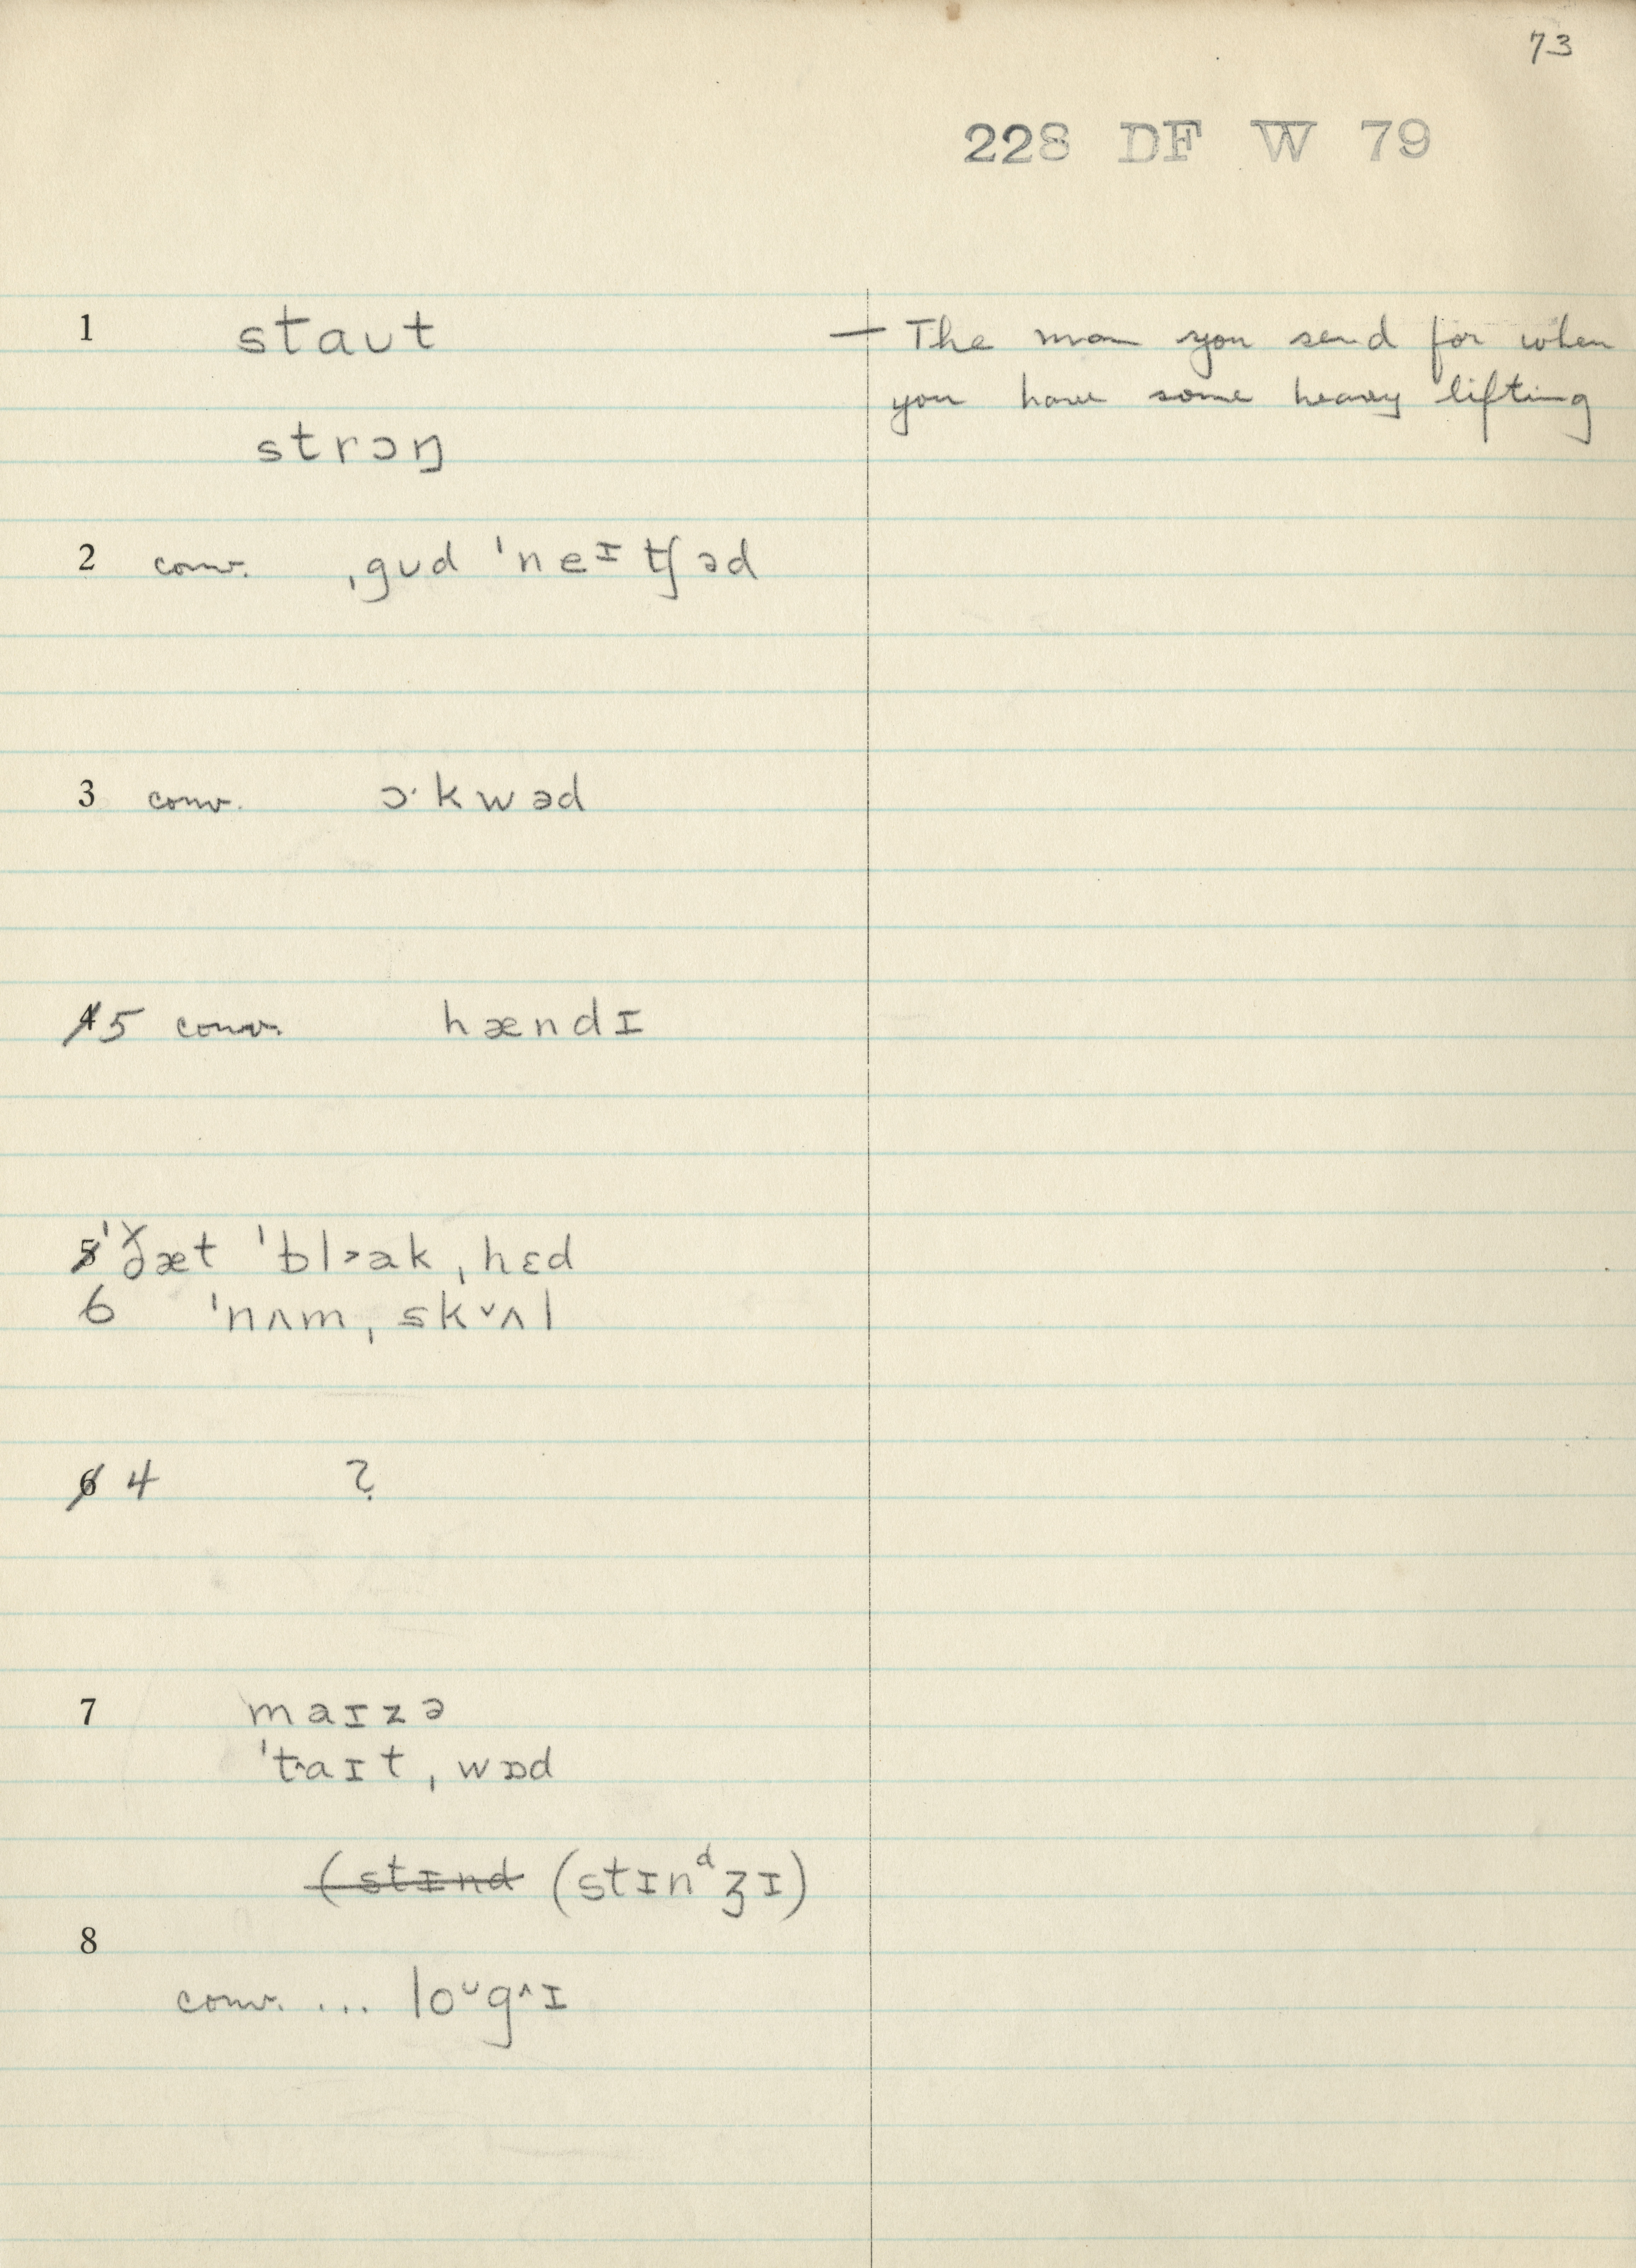 73
228 DF W 79
1 staʊt — The man you send for when
you have some heavy lifting
strɔŋ
2 conv. ˌgʊd ˈneᶦʧəd
3 conv. ɔˑkwəd
4 5 conv. hændɪ
5 ˈðæt ˈblɔ˃ək ˌhɛd
6 ˈnʌm ˌskᵛʌl
6 4 ?
7 maɪzə
ˈt˄aɪt ˌwɒd
(stɪnd (stɪnᵈʒɪ)
8
conv. ... loᵘg˄ɪ